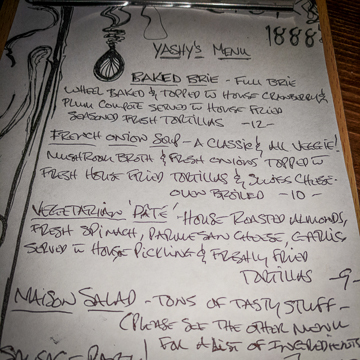 YASHY'S MENU
1888
BAKED BRIE - FULL BRIE
WHEEL BAKED & TOPPED W HOUSE CRANBERRY &
PLUM COMPOTE SERVED W HOUSE FRIED
SEASONED FRESH TORTILLAS -12-
FRENCH ONION SOUP - A CLASSIC & ALL VEGGIE!
MUSHROOM BROTH & FRESH ONIONS TOPPED W
FRESH HOUSE FRIED TORTILLAS & SWISS CHEESE-
OVEN BROILED -10-
VEGETARIAN 'PATE' - HOUSE ROASTED ALMONDS,
FRESH SPINACH, PARMESAN CHEESE GARLIC
SERVED W HOUSE PICKLING & FRESHLY FRIED
TORTILLAS -9-
MAISON SALAD - TONS OF TASTY STUFF-
(PLEASE SEE THE OTHER MENU
FOR A LIST OF INGREDIENTS